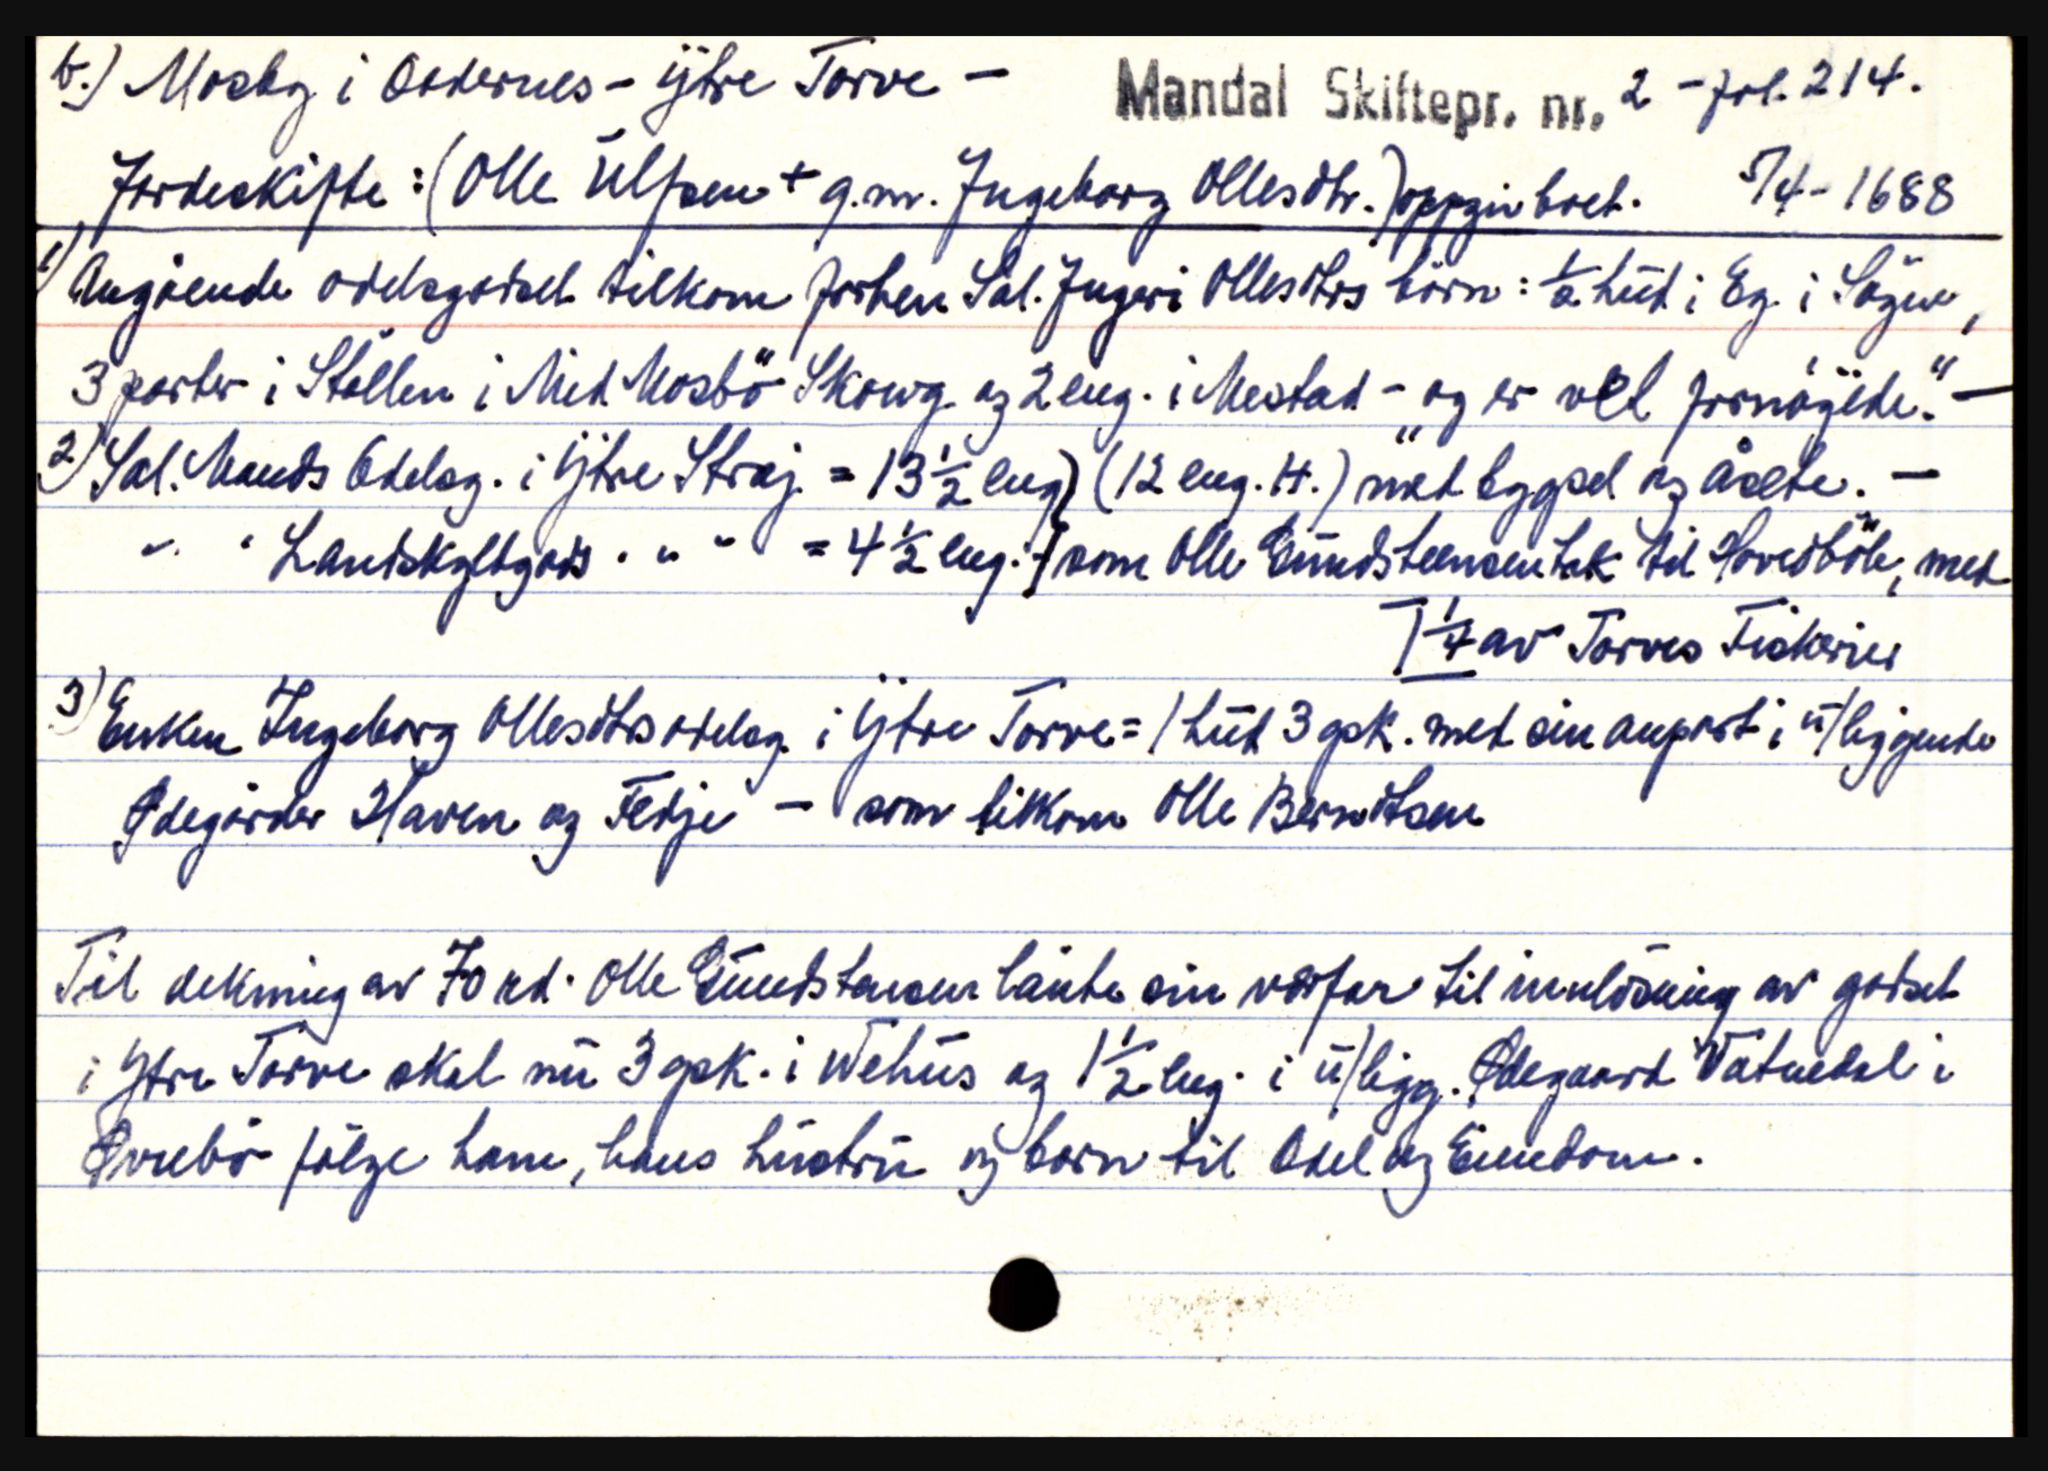 b.) Mosby i Oddernes - ÿtre Torve - Mandal Skiftepr. nr. 2 - fol. 214.
Jordeskifte: (Olle Ülfsen + g.m. Ingeborg Ollesdtr.) oppgir boet. 5/4-1688
1) Angående odelsgodset tilkom forhen Sal. Ingeri Ollesdtrs börn: ½ hüd i Eg. i Sögne,
3 parter i Stöllen i Med Mosbö Skowg og 2 eng. i Mestad - "og er vel fornöÿede." -
2) Sal. Mands Odelsg. i ÿtre Straj = 13½ eng) (12 eng. H.) med bygsel og åsete. -
" " Landskyldgods. " " = 4½ eng. } som Olle Gündsteensen tok til Hovedböle, med
1/4 av Torves Fiskerier
3) Enken Ingeborg Ollesdtrs odelsg. i ÿtre Torve = 1 hüd 3 gsk. med sin anpart i ü/liggende
Ødegårder Haven og Fedje - som tilkom Olle Berndtsen
Til dekning av 70 rd. Olle Gündstensen länte sin værfar til innlösning av godset
i ÿtre Torve skal nü 3 gsk. i Wehüs og 1½ eng. i ü/ligg. Ødegaard Vatnedal i
Øvrebö fölge ham, hans hüstrü og born til Odel og Eiendom.